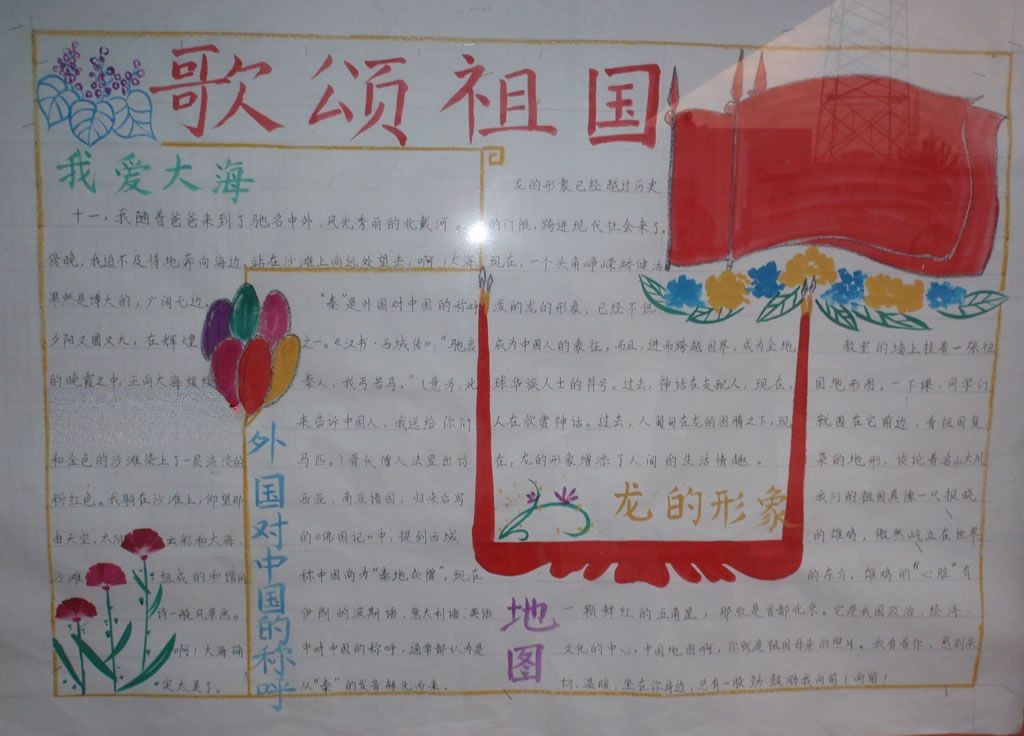 歌颂祖国
我爱大海
十一，我随着爸爸来到了驰名中外、风光秀丽的北戴河。
傍晚，我迫不及待地奔向海边，站在沙滩上向远处望去，啊！大海
果然是博大的，广阔无边。
夕阳又圆又大，在辉煌
的晚霞之中，正向大海缓缓
和金色的沙滩染上了一层淡淡的
粉红色。我躺在沙滩上，仰望那
由天空、太阳、云彩和大海、
沙滩组成的和谐的
诗一般风景画。
啊！大海确
实太美了。
外国对中国的称呼
“秦”是外国对中国的称呼
之一。《汉书·西域传》：“驰言
秦人，我丐若马。”（意为，此
来告诉中国人，我送给你们
马匹。）晋代僧人法显出访
西亚、南亚诸国，归来后写
的《佛国记》中，提到西域
称中国尚为“秦地众僧”。现在
伊朗的波斯语、意大利语、英语
中对中国的称呼，通常都认为是
从“秦”的发音转化而来。
龙的形象已经越过历史
的门限，跨进现代社会来了。
现在，一个头角峥嵘矫健活
泼的龙的形象，已经不但
成为中国人的象征，而且，进而跨越国界，成为全地
球华族人士的符号。过去，神话在支配人，现在，
人在欣赏神话。过去，人匍匐在龙的图腾之下，现
在，龙的形象增添了人间的生活情趣。
龙的形象
地图
教室的墙上挂着一张祖
国地形图，一下课，同学们
就围在它前边，看祖国复
杂的地形，谈论着名山大川
我们的祖国真像一只报晓
的雄鸡，傲然屹立在世界
的东方。雄鸡的“心脏”有
一颗鲜红的五角星，那就是首都北京。它是我国政治、经济、
文化的中心。中国地图啊，你就是祖国母亲的照片。我看着你，感到亲
切、温暖，坐在你身边，总有一股劲鼓动我向前！向前！